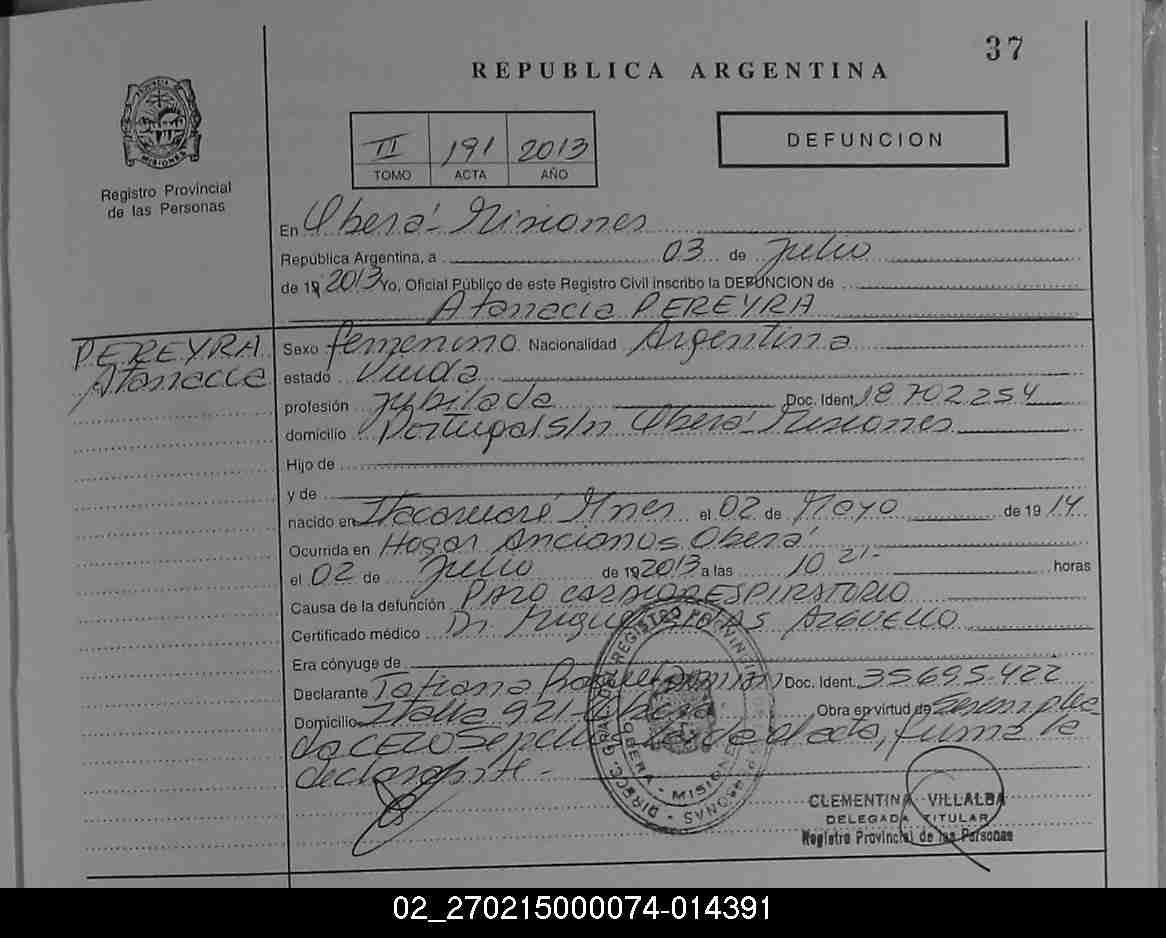 37
REPUBLICA ARGENTINA
II 191 2013
TOMO ACTA AÑO
DEFUNCION
PROVINCIA DE
MISIONES
Registro Provincial
de las Personas
En Oberá - Misiones
Republica Argentina, a 03 de Julio
de 19 2013 Yo, Oficial Público de este Registro Civil inscribo la DEFUNCION de
Atanacia PEREYRA
PEREYRA
Atanacia
Sexo femenino Nacionalidad Argentina
estado Viuda
profesión Jubilada Doc. Ident. 18.702.254
domicilio Portugal s/n Oberá - Misiones
Hijo de
y de
nacido en Itacaruaré Mnes el 02 de Mayo de 19 14
Ocurrida en Hogar Ancianos Oberá
el 02 de Julio de 19 2013 a las 10 21- horas
Causa de la defunción PARO CARDIORESPIRATORIO
Certificado médico Dr ARGUELLO
Era cónyuge de
Declarante Tatiana Doc. Ident. 35695.422
Domicilio Italia 921 - Oberá Obra en virtud de
el acta, firma la
declarante -
DIRECC. GRAL. DEL REGISTRO PROVINCIAL DE LAS PERSONAS
OBERA - MISIONES
CLEMENTINA VILLALBA
DELEGADA TITULAR
Registro Provincial de las Personas
02_270215000074-014391